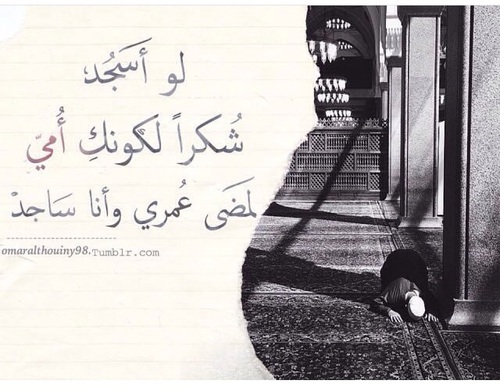 لو أسَجُد
شُكراً لكونكِ أُميّ
لمضَى عُمري وأنا سَاجدْ
omaralthouiny98.Tumblr.com